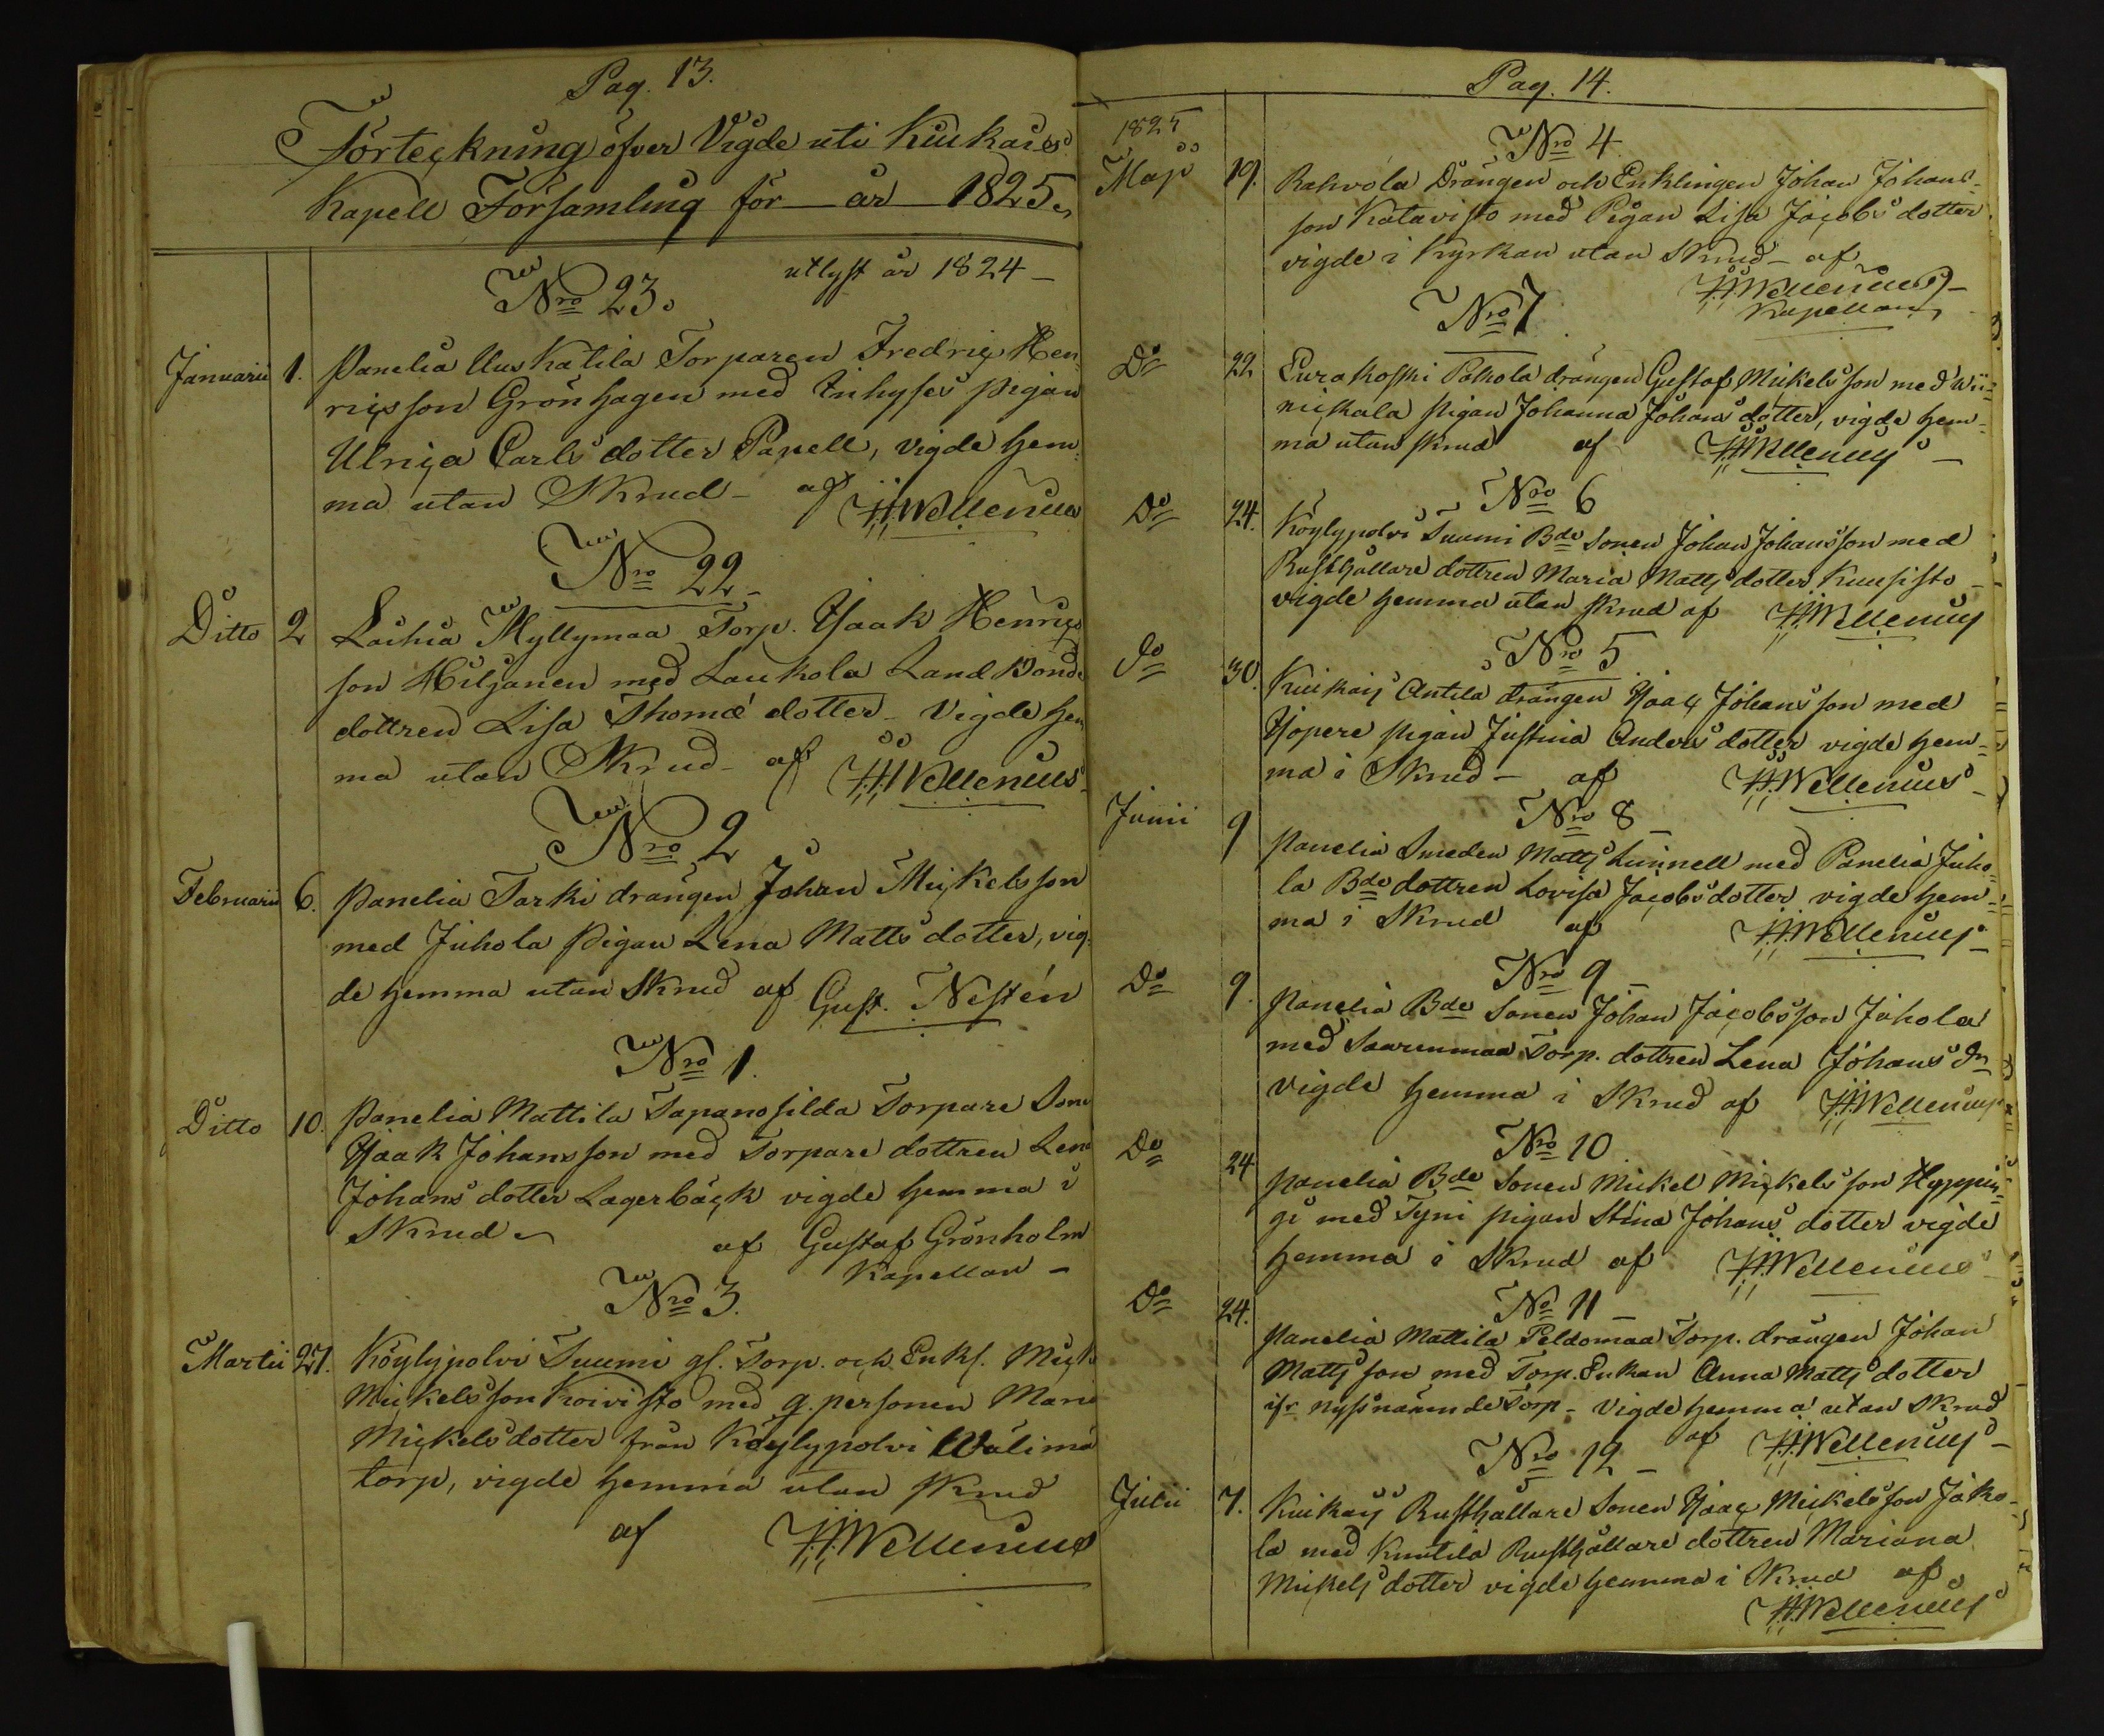 Pag. 13.
Förteckning öfver Vigde uti Kiukais
Kapell Församling för år 1825.
Nro 23. utlyst år 1824 -
Januarii 1. Panelia Uuskatila Torparen Fredric Hen-
ricsson Grönhagen med Inhyses pigan
Ulrica Carls dotter Panell, vigde hem-
ma utan Skrud - af H.H. Wellenius
Nro 22 -
Ditto 2 Laihia Myllymaa Torp. Isaak Henrics
son Hiljanen med Laukola Land Bonde
dottren Lisa Thomæ dotter - Vigde hem
ma utan Skrud - af H.H. Wellenius
Nro 2
Februarii 6. Panelia Tarki drängen Johan Mickelsson
med Juhola Pigan Lena Matts dotter, vig-
de hemma utan Skrud af Gust. Nestén
Nro 1.
Ditto 10. Panelia Mattila Tapanosilda Torpare Sone
Isaak Johansson med Torpare dottren Lena
Johans dotter Lagerbäck vigde hemma i
Skrud af Gustaf Grönholm
Kapellan -
Nro 3.
Martii 27. Köylypolvi Tuumi gl. Torp. och Enkl. Mick
Mickelsson Koivisto med q. personen Mari
Mickelsdotter från Köylypolvi Wälimä
torp, vigde hemma utan skrud
af H.H. Wellenius
Pag. 14.
1825
Nro 4
Maji 19. Rahvola Drängen och Enklingen Johan Johans-
son Katavisto med Pigan Lisa Jacobs dotter
vigde i Kyrkan utan Skrud - af
H.H. Wellenius
Kapellan
Nro 7
Do 22 Eurakoski Pakola drängen Gustaf Mickelsson med Wii-
nickala pigan Johanna Johans dotter, vigde hem-
ma utan skrud af H.H. Wellenius -
Nro 6
Do 24. Köylypolvi Tuumi Bde Sonen Johan Johansson med
Rusthållare dottren Maria Matts dotter Kuusisto -
vigde hemma utan skrud af H.H. Wellenius
Nro 5
Do 30. Kiukais Antila drängen Isaac Johansson med
Isopere pigan Justina Anders dotter vigde hem-
ma i Skrud - af H.H. Wellenius -
Nro 8 -
Junii 9 Panelia Smeden Matts Linnell med Panelia Juho-
la Bde dottren Lovisa Jacobsdotter vigde hem-
ma i Skrud af H.H. Wellenius -
Nro 9 -
Do 9. Panelia Bde Sonen Johan Jacobsson Juhola
med Saarenmaa Torp. dottren Lena Johans dr
vigde hemma i Skrud af H.H. Wellenius
Nro 10
Do 24 Panelia Bde Sonen Mickel Mickelsson Hyppin-
gi med Tyni pigan Stina Johans dotter vigde
hemma i Skrud af H.H. Wellenius
No 11 -
Do 24. Panelia Mattila Peldomaa Torp. drängen Johan
Mattsson med Torp. Enkan Anna Matts dotter
ifr nyssnämnde Torp - Vigde hemma utan Skrud
af H.H. Wellenius -
Nro 12 -
Julii 7. Kiukais Rusthållare Sonen Isaac Mickelsson Jako-
la med Knutila Rusthållare dottren Mariana
Mickels dotter vigde hemma i Skrud af
H.H. Wellenius